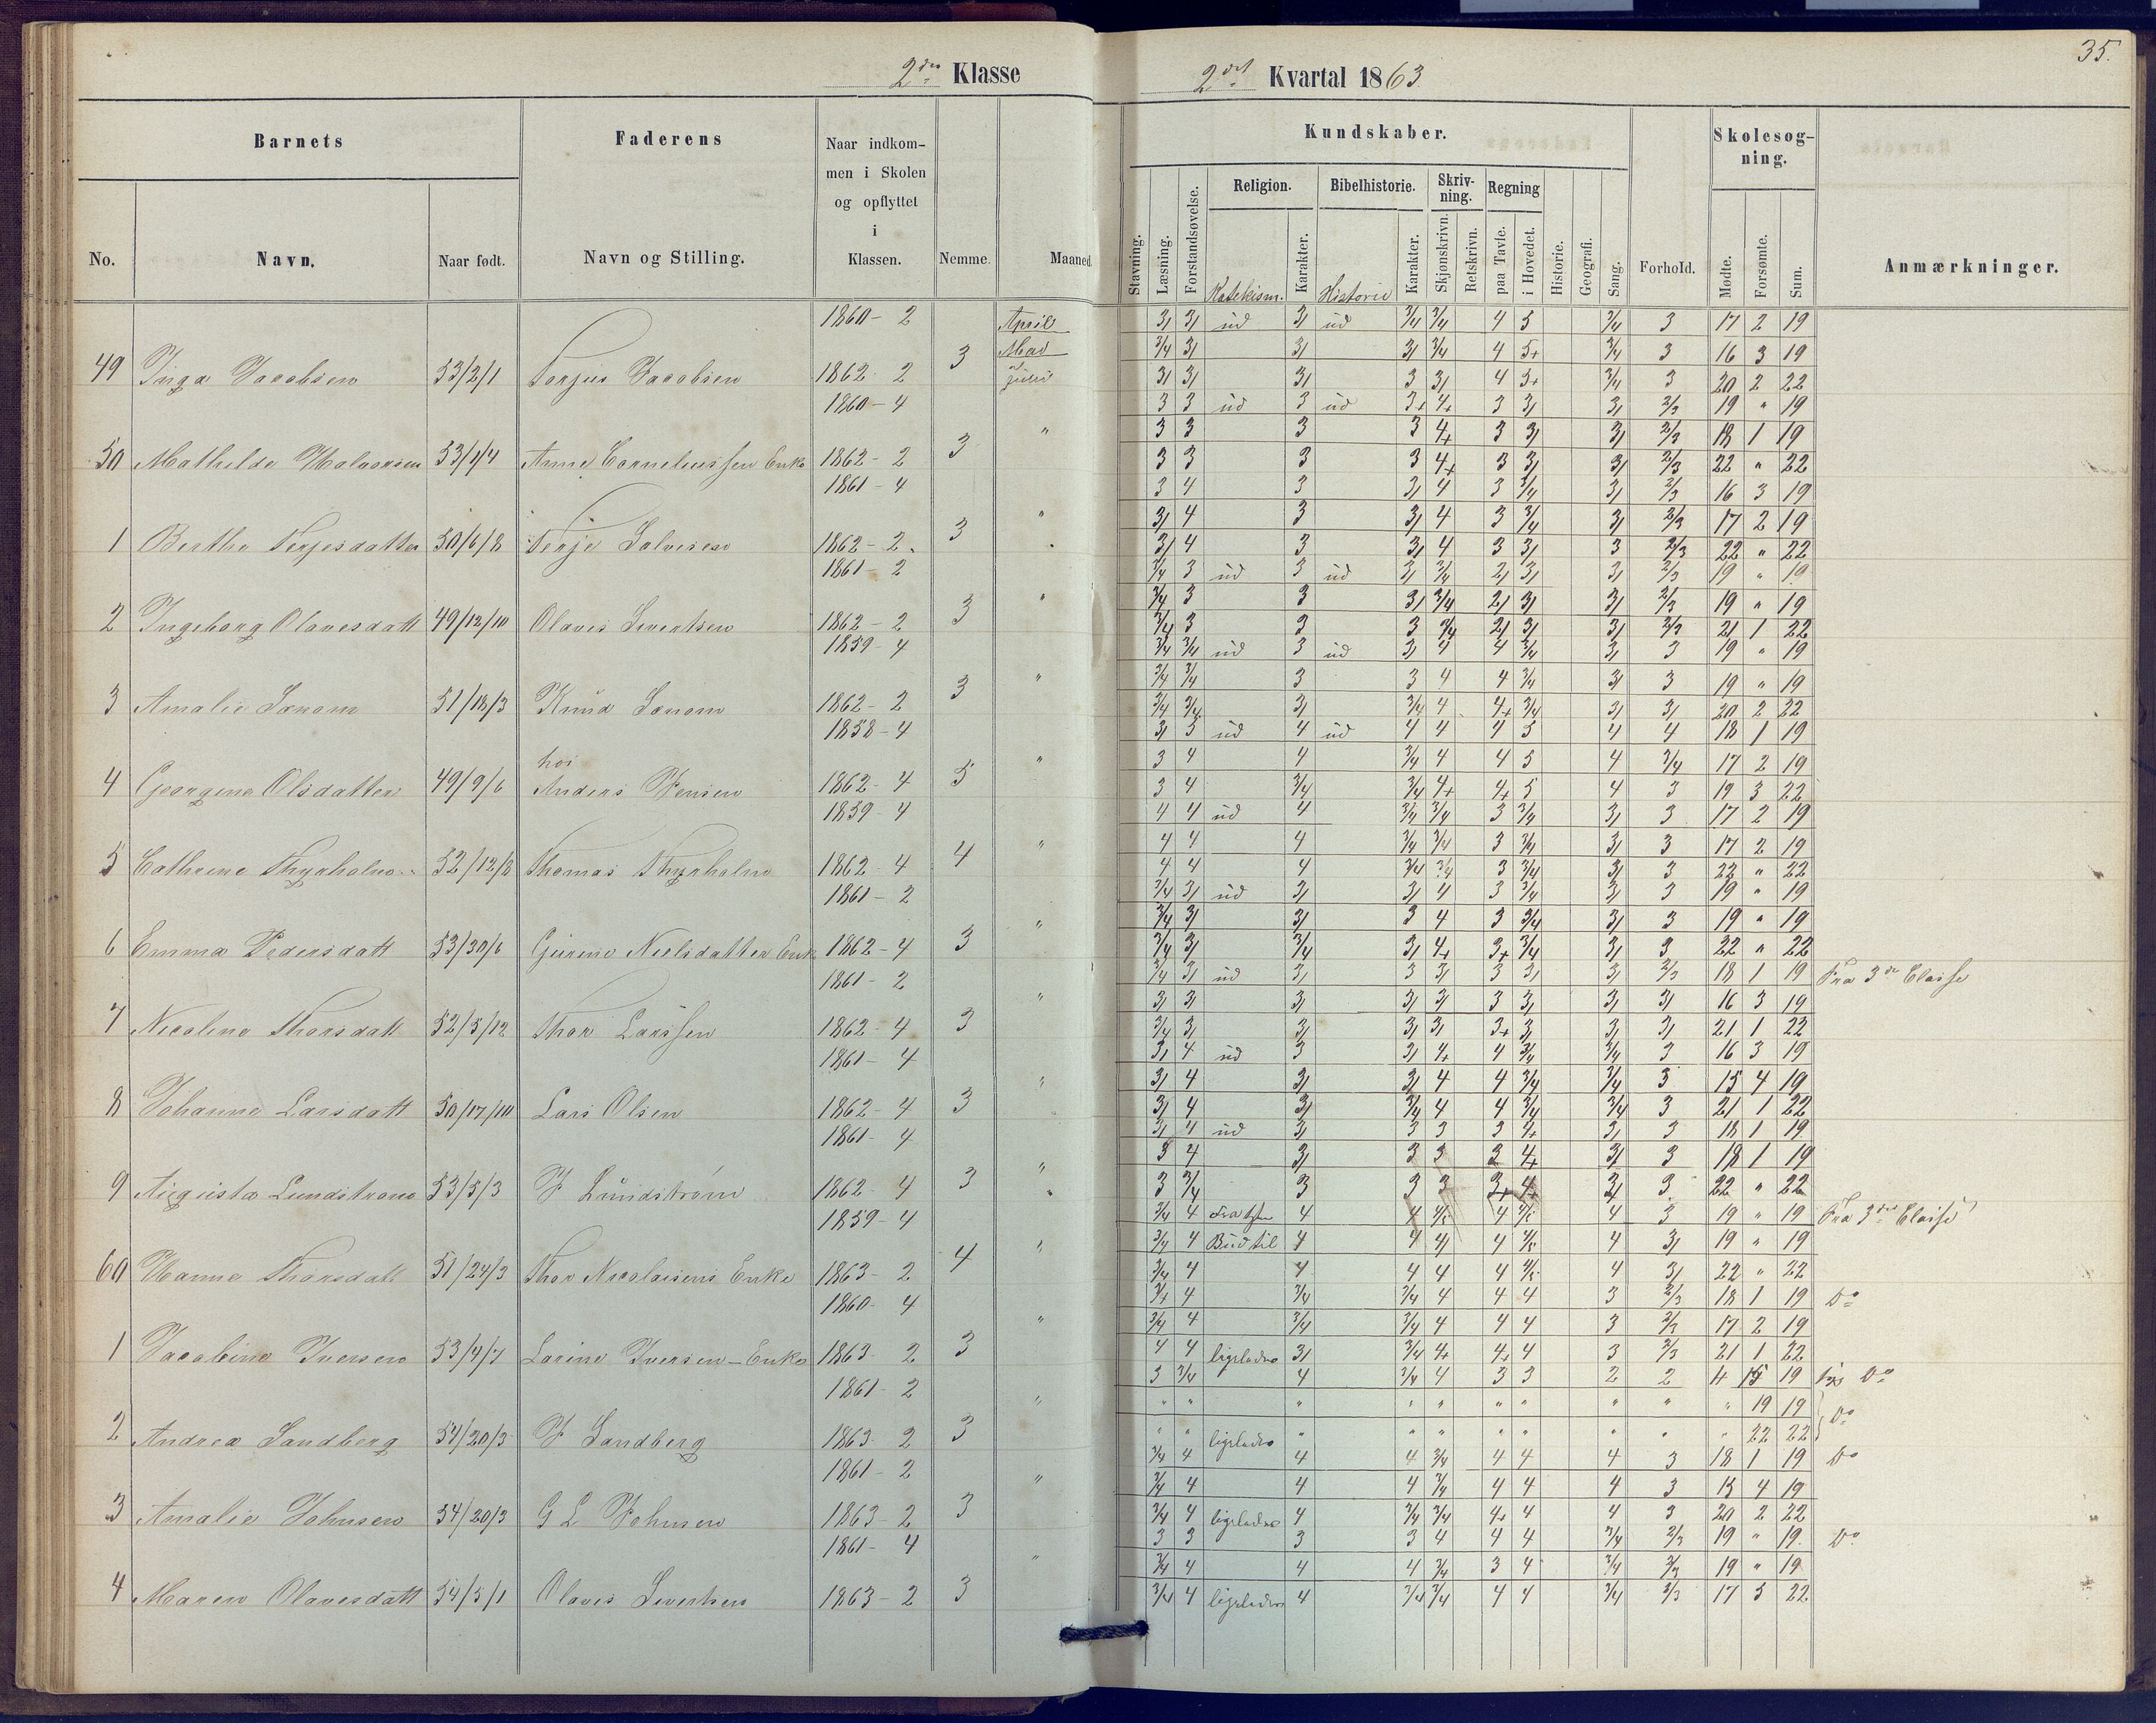 35.
2den Klasse 2det Kvartal 1863.
Barnets Faderens Naar indkom-
men i Skolen
og opflyttet
i
Klassen. Kundskaber. Skolesøg-
ning.
Religion. Bibelhistorie. Skriv-
ning. Regning
No. Navn. Naar født. Navn og Stilling. Nemme. Maaned. Stavning. Læsning. Forstandsøvelse. Katekism. Karakter. Historie Karakter. Skjønskrivn. Retskrivn. paa Tavle. i Hovedet. Historie. Geografi. Sang. Forhold. Mødte. Forsømte. Sum. Anmærkninger.
1860 - 2 April 3/ 3/ ud 3/ ud 3/4 3/4 4 5 3/4 3 17 2 19
Mai 3/4 3/ 3/ 3/ 3/4 4 5+ 3/4 3 16 3 19
49 Inga Jacobsen 53/2/1 Torjus Jacobsen 1862 - 2 3 Juni 3/ 3/ 3/ 3 3/ 4 5+ 3/4 3 20 2 22
1860 - 4 3 3 ud 3 ud 3+ 4+ 3 3/ 3/ 2/3 19 " 19
" 3 3 3 3 4+ 3 3/ 3/ 2/3 18 1 19
50 Mathilde Halvorsen 53/1/4 Anne Corneliussen Enke 1862 - 2 3 3 3 3 3 4+ 3 3/ 3/ 2/3 22 " 22
1861 - 4 3 4 3 3/ 4 3 3/4 3/ 2/3 16 3 19
" 3/ 4 3 3/ 4 3 3/4 3/ 2/3 17 2 19
1 Berthe Terjesdatter 50/6/8 Terje Salvesen 1862 - 2 3 3/ 4 3 3/ 4 3 3/ 3 2/3 22 " 22
1861 - 2 3/4 3 ud 3 ud 3/ 3/4 2/ 3/ 3/ 2/3 19 " 19
" 3/4 3 3 3/ 3/4 2/ 3/ 3/ 2/3 19 " 19
2 Ingeborg Olavesdatt 49/12/10 Olaves Sivertsen 1862 - 2 3 3/4 3 3 3 3/4 2/ 3/ 3/ 2/3 21 1 22
1859 - 4 3/4 3/4 ud 3 ud 3/ 4 4 3/4 3/ 3 19 " 19
" 3/4 3/4 3 3 4 4 3/4 3/ 3 19 " 19
3 Amalie Sanom 51/18/3 Knud Sanom 1862 - 2 3 3/4 3/4 3/ 3/4 4 4+ 3/4 3/ 3/ 20 2 22
1858 - 4 3/ 5 ud 4 ud 4 4 4 5 4 4 18 1 19
hos " 3 4 4 3/4 4 4 5 4 3/4 17 2 19
4 Georgine Olsdatter 49/9/6 Anders Jensen 1862 - 4 5 3 4 3/4 3/4 4+ 4+ 5 4 3 19 3 22
1859 - 4 4 4 ud 4 3/4 3/4 3 3/4 3/ 3 17 2 19
" 4 4 4 3/4 3/4 3 3/4 3/ 3 17 2 19
5 Cathrine Thyrholm 52/12/8 Thomas Thyrholm 1862 - 4 4 4 4 4 3/4 3/4 3 3/4 3/ 3 22 " 22
1861 - 2 3/4 3/ ud 3/ 3/ 4 3 3/4 3/ 3 19 " 19
" 3/4 3/ 3/ 3 4 3 3/4 3/ 3 19 " 19
6 Emma Pedersdatt 53/30/6 Gurine Nielsdatter Enk 1862 - 4 3 3/4 3/ 3/4 3/ 4+ 3+ 3/4 3/ 3 22 " 22
1861 - 2 3/4 3/ ud 3/ 3 3/ 3 3/ 3/ 2/3 18 1 19 Fra 3de Classe
" 3/ 3/ 3/ 3/ 3/ 3 3/ 3/ 3/ 16 3 19
7 Nicoline Thorsdatt 52/5/12 Thor Larssen 1862 - 4 3 3/4 3/ 3/ 3/ 3/ 3+ 3/ 3/ 3/ 21 1 22
1861 - 4 3/ 4 ud 3 3/ 4+ 4 3/4 3/4 3 16 3 19
" 3/ 4 3/ 3/ 4 4 3/4 3/4 3 15 4 19
8 Johanne Larsdatt 50/17/10 Lars Olsen 1862 - 4 3 3/ 4 3/ 3/4 4 4 3/4 3/4 3 21 1 22
1861 - 4 3/ 4 ud 3/ 3 3 3 4+ 3/ 3 18 1 19
" 3 4 3/ 3 3 3 4+ 3/ 3 18 1 19
9 Augusta Lundstrøm 53/5/3 F Lundstrøm 1862 - 4 3 3 3/4 3 3 3 3+ 4+ 3/ 3 22 " 22
1859 - 4 3/4 4 4 4 4/5 4 4/5 4 3 19 " 19 Fra 3die Classe
" 3/4 4 Bud til 4 4 4/ 4 4/5 4 3/ 19 " 19
60 Hanne Thorsdatt 51/24/3 Thor Nicolaisens Enke 1863 - 2 4 3/4 4 4 4 4 4 4/5 4 3/ 22 " 22
1860 - 4 3/4 4 3/4 3/4 4 4 4 3 2/3 18 1 19 Do
" 3/4 4 3/4 3/4 4 4 4 3 2/3 17 2 19
1 Jacobine Iversen 53/4/7 Larine Iversen - Enke 1863 - 2 3 4 4 ligeledes 3/ 3/4 4+ 4+ 4 3 2/3 21 1 22
1861 - 2 3 3/4 4 3/4 4 3 3 2 2 4 15 19 Do
" " " " " " " " " " " 19 19 Do
2 Andrea Sandberg 54/20/3 F Sandberg 1863 - 2 3 " " ligeledes " " " " " " " " 22 22
1861 - 2 3/4 4 4 4 3/4 4 4 4 3 18 1 19 Do
" 3/4 4 4 4 3/4 4 4 4 3 15 4 19
3 Amalie Johnsen 54/20/3 G L Johnsen 1863 - 2 3 3/4 4 ligeledes 4 3/4 3/4 4+ 4 4 3 20 2 22
1861 - 4 3 3 3 3 4 4 4 3/4 2/3 19 " 19 Do
" 3/4 4 4 4 3/4 3 4 3/4 2/3 19 " 19
4 Maren Olavesdatt 54/5/1 Olaves Sivertsen 1863 - 2 3 3/4 4 ligeledes 4 3/4 3/4 4 4 3/4 2/3 17 5 22